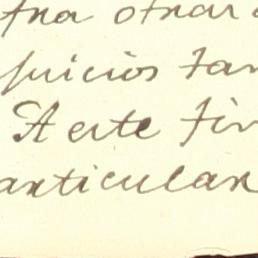 tra otrar
juicios tan
A este fin
articular